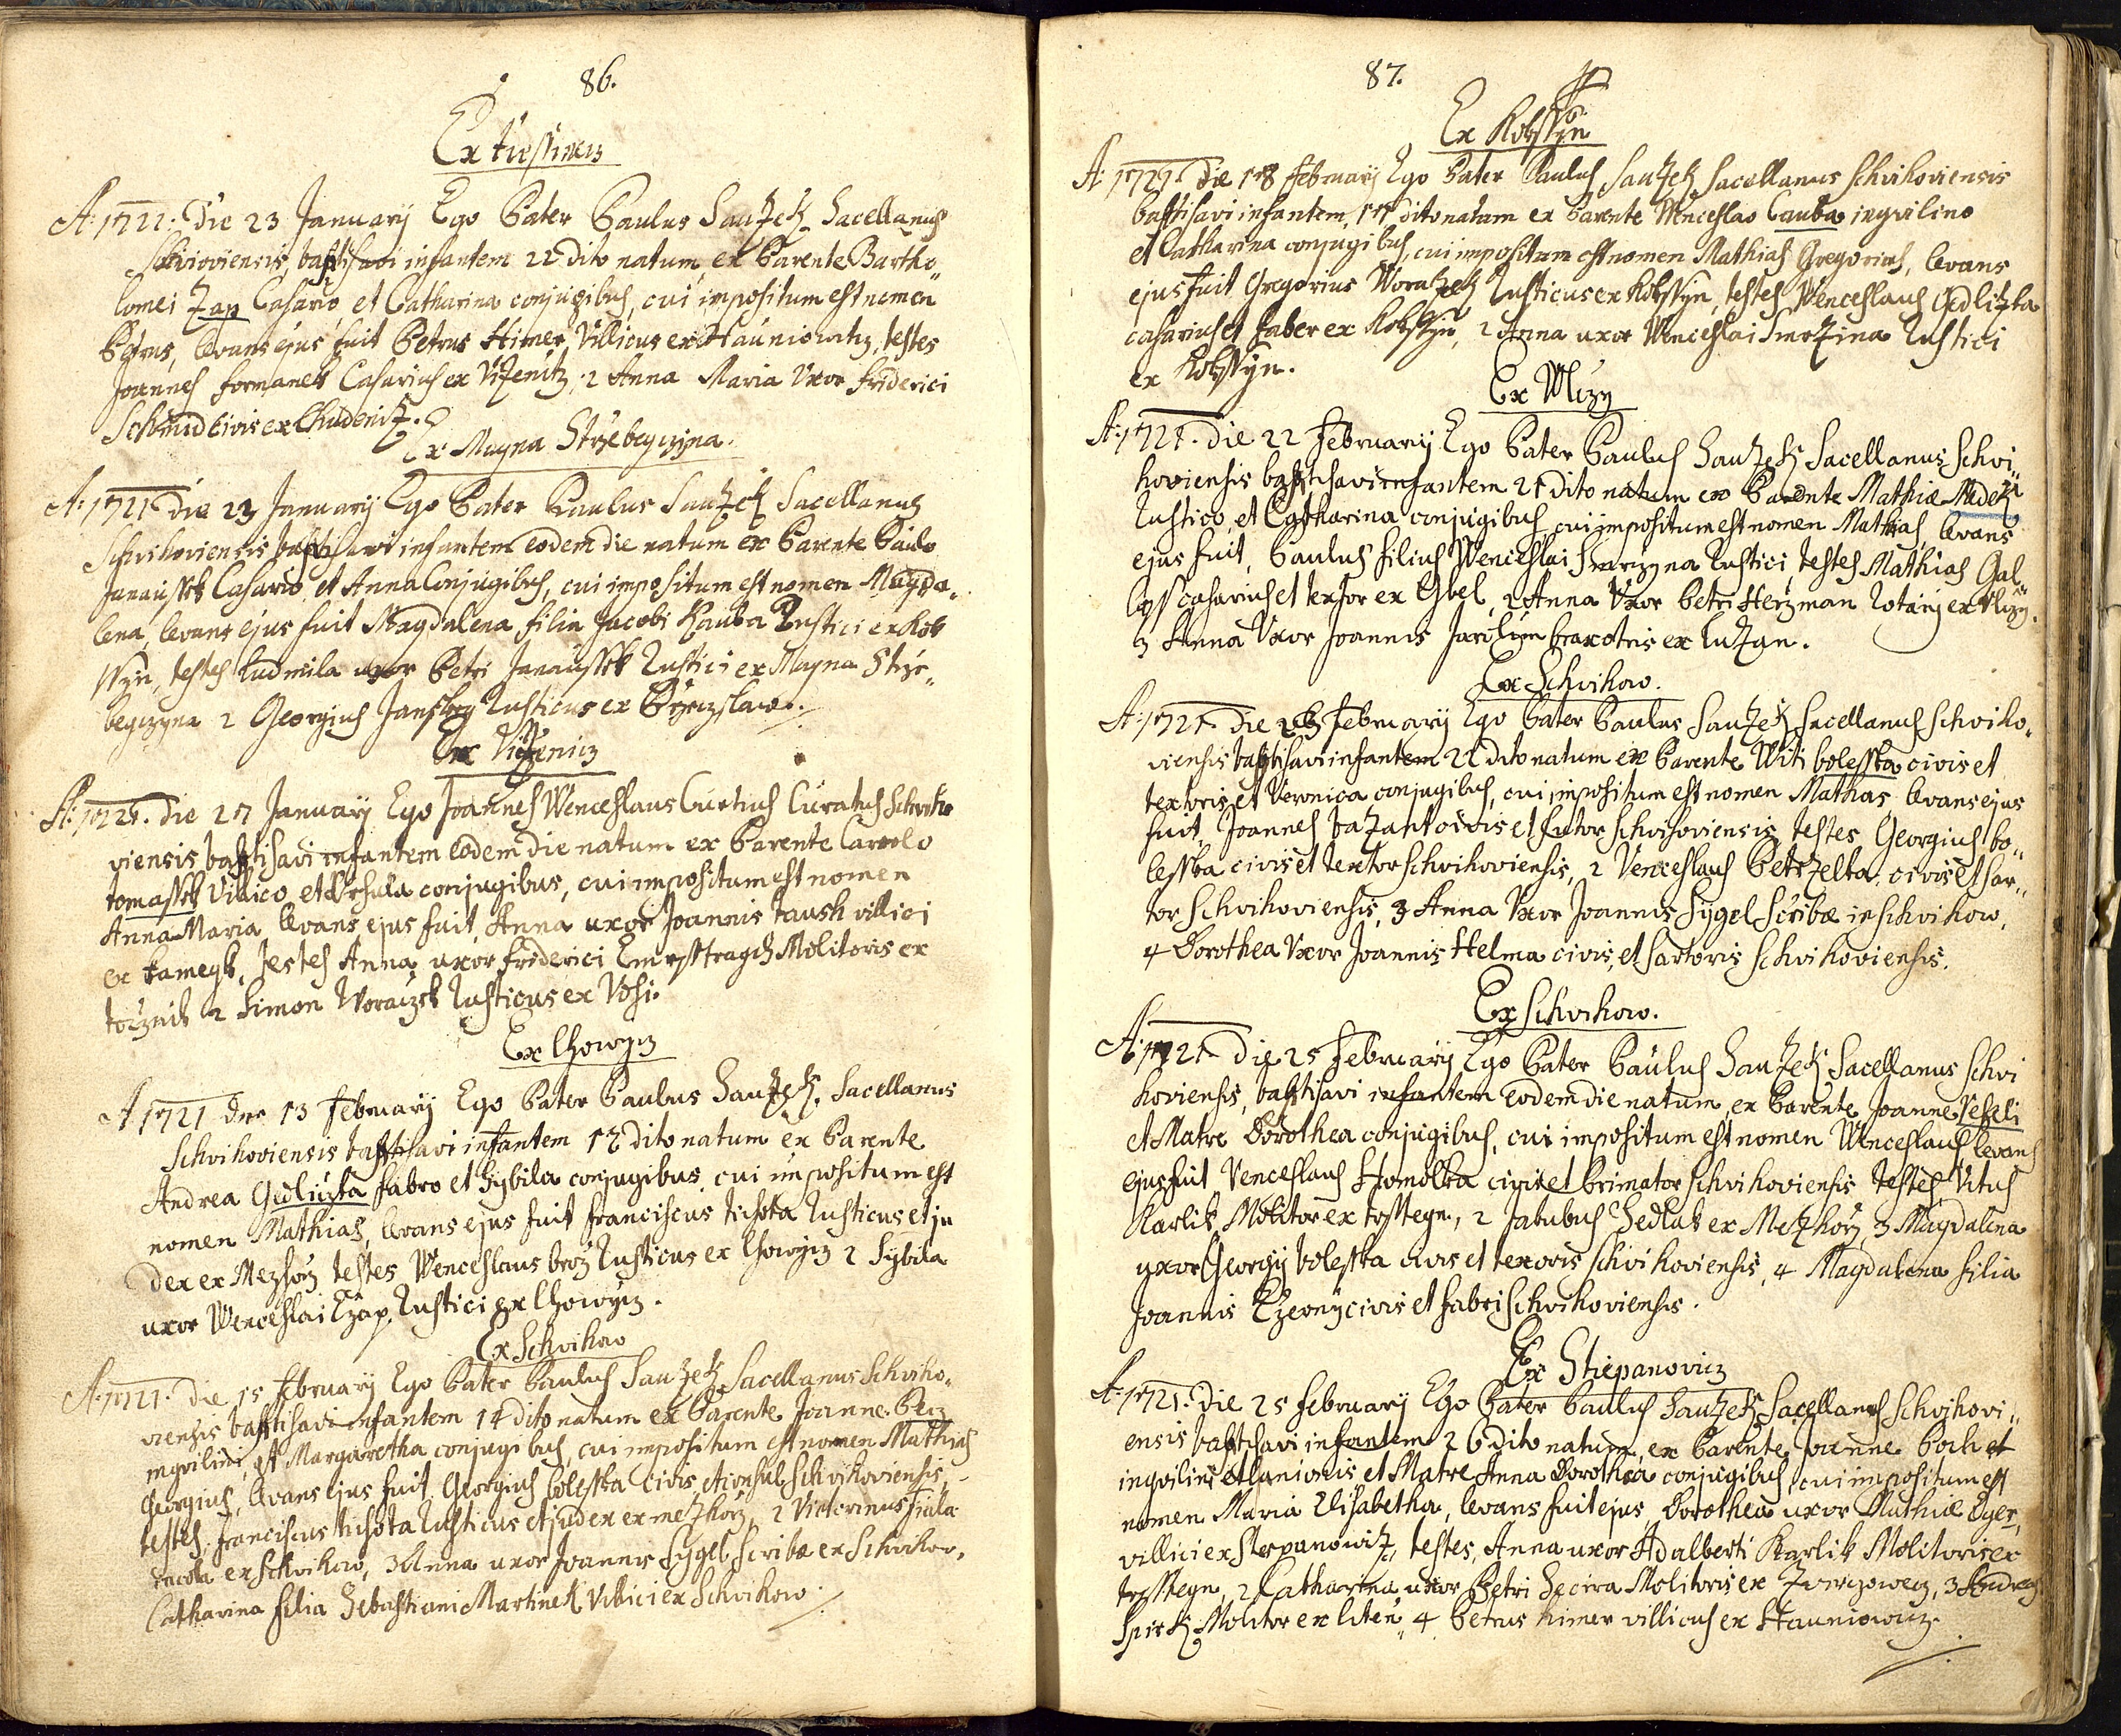 86.
Ex
A: 1721. Die 23 January Ego Pater Paulus Sauzek Sacellanus
baptisavi infantem 22 dito natum, ex Parente Bartho„
lomei Zap Casario, et Catharina conjugibus, cui impositum est nomen
Petrus, levans ejus fuit Petrus Himer, Villicus ex Hauniowitz, testes
Joannes formanek Casarius ex Viženitz, 2 Anna Maria Uxor Friderici
Schmid civis ex Chudenitz.
Ex Magna
A: 1721 die 23 January Ego Pater Paulus Sauzek Sacellanus
Schvihoviensis baptisavi infantem eodem die natum ex Parente Paulo
Janaussek Casario, et Anna Conjugibus, cui impositum est nomen Magda„
lena, levans ejus fuit Magdalena filia Jacobi Kauba Rustici ex Kob
ssyn, testes Ludmila uxor Petri Janaussek Rustici ex Magna Strze„
2 Georgius Rusticus ex
Ex Viženicz
A: 1721. die 27 January Ego Joannes Wenceslaus Curtius Curatus Schviho
viensis baptisavi infantem eodem die natum ex Parente Carolo
tomassek Villico, et Ursula conjugibus, cui impositum est nomen
Anna Maria, levans ejus fuit Anna uxor Joannis Taush villici
ex kamegk, testes Anna uxor Friderici Molitoris ex
tocznik 2 Simon Woraczek Rusticus ex Vosi.
Ex Lhowycz
A 1721 die 13 February Ego Pater Paulus Sauzek, Sacellanus
Schvihoviensis baptisavi infantem 12 dito natum ex Parente
Andrea Gedliczka fabro et Sybila conjugibus, cui impositum est
nomen Mathias, levans ejus fuit Franciscus tichota Rusticus et ju
dex ex Mezhorz testes Wenceslaus broz Rusticus ex Lhowycz 2 Sybila
uxor Wenceslai Czap Rustici ex Lhowycz.
Ex Schvihow
A: 1721. die 15 February Ego Pater Paulus Sauzek Sacellanus Schviho„
viensis baptisavi infantem 14 dito natum ex Parente Joanne Pecz
inqvilini, et Margaretha conjugibus, cui impositum est nomen Mathias
Georgius, levans ejus fuit Georgius bolesska civis, et consul Schvihoviensis,
testes Franciscus tichota Rusticus et judex ex mezhorz, 2 Victorinus fiala
incola ex Schvihow, 3 Anna uxor Joannis Sygel Scribæ ex Schvihow,
Catharina filia Sebastiani Martinek Villici ex Schvihow.
87.
Ex Kobssyn
A: 1721. die 18 february Ego Pater Paulus Sauzek Sacellanus Schvihoviensis
baptisavi infantem, 17 dito natum ex Parente Wenceslao Cauba inqvilino
et Catharina conjugibus, cui impositum est nomen Mathias Gregorius, levans
ejus fuit Gregorius Woratzek Rusticus ex Kobssyn, testes Wenceslaus Gedlitzka
casarius et faber ex Kobssyn, 2 Anna uxor Wenceslai Smrzina Rustici
ex Kobssyn.
Ex Wlczy
A: 1721. Die 22 February Ego Pater Paulus Sauzek Sacellanus Schvi„
hoviensis baptisavi infantem 21 dito natum ex Parente Mathiæ
Rustico, et Catharina conjugibus, cui impositum est nomen Mathias, levans
ejus fuit, Paulus filius Wenceslai Rustici, testes Mathias Gal„
casarius et textor ex Gbel, 2 Anna Uxor Petri Herzman Rotarij ex Wlczy.
3 Anna Uxor Joannis Jarolim braxatoris ex Luzan.
Ex Schvihow.
A: 1721. die 23 February Ego Pater Paulus Sauzek Sacellanus Schviho„
viensis baptisavi infantem 22 dito natum ex Parente Witi bolesska civis et
textoris, et Veronica conjugibus, cui impositum est nomen Mathias levans ejus
fuit, Joannes bazant civis et sutor Schvihoviensis, testes, Georgius bo„
lesska civis et textor Schvihoviensis, 2 Venceslaus Petrzelka, civis et sar„
tor Schvihoviensis, 3 Anna Uxor Joannis Sygel Scribæ in Schvihow,
4 Dorothea Uxor Joannis Helma civis, et sartoris Schvihoviensis.
Ex Schvihow.
A: 1721. die 25 February Ego Pater Paulus Sauzek Sacellanus Schvi
hoviensis, baptisavi infantem eodem die natum, ex Parente Joanne Veseli
et Matre Dorothea conjugibus, cui impositum est nomen Wenceslaus levans
ejus fuit Venceslaus Homolka civis et primator Schvihoviensis testes, Vitus
Karlik Molitor ex tosstegn, 2 Jakubus Sedlak ex Mezhorz, 3 Magdalena
uxor Georgij bolesska civis et textoris Schvihoviensis, 4 Magdalena filia
Joannis Czerny civis et fabri Schvihoviensis.
Ex Stiepanovicz
A: 1721. die 25 February Ego Pater Paulus Sauzek Sacellanus Schvihovi„
ensis baptisavi infantem 26 dito natum, ex Parente Joanne
inqvilini et lanionis et Matre Anna Dorothea conjugibus, cui impositum est
nomen Maria Elisabetha, levans fuit ejus, Dorothea uxor Mathiæ Eger,
villici ex Stepanowitz, testes, Anna uxor Adalberti Karlik Molitoris ex
tosstegn, 2 Catharina uxor Petri Secira Molitoris ex 3 Andreas
Molitor ex liten 4 Petrus himer villicus ex Hauniowicz.